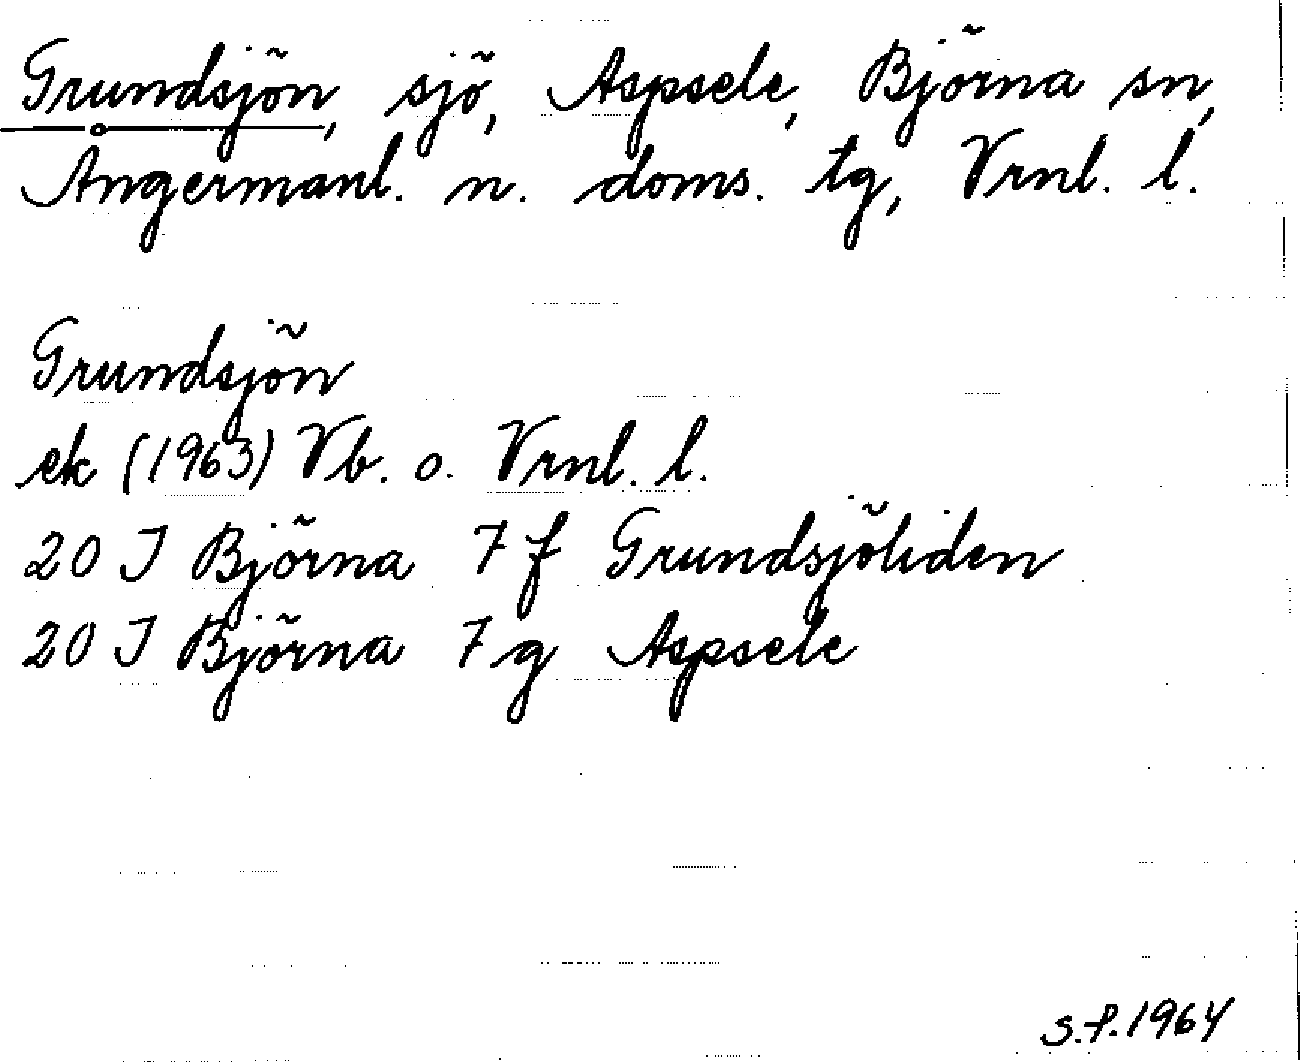 Grundsjön, sjö, Aspsele, Björna sn,
Ångermanl. n. doms. tg, Vrnl. l.
Grundsjön
ek (1963) Vb. o. Vrnl. l.
20 J Björna 7 f Grundsjöliden
20 J Björna 7 g Aspsele
S.f. 1964